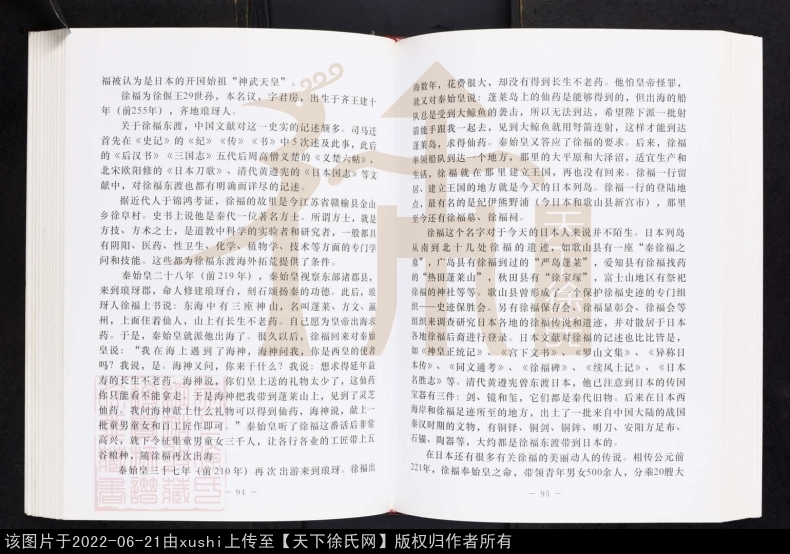 福被认为是日本的开国始祖“神武天皇”。
徐福为徐偃王29世孙，本名议，字君房，出生于齐王建十
年（前255年），齐地琅玡人。
关于徐福东渡，中国文献对这一史实的记述颇多。司马迁
首先在《史记》的《纪》《传》《书》中5次述及此事，此后
的《后汉书》《三国志》五代后周高僧义楚的《义楚六帖》、
北宋欧阳修的《日本刀歌》、清代黄遵宪的《日本国志》等文
献中，对徐福东渡也都有明确而详尽的记述。
据近代人于锦鸿考证，徐福的故里是今江苏省赣榆县金山
乡徐阜村。史书上说他是秦代一位著名方士。所谓方士，就是
方技、方术之士，是道教中科学的实验者和研究者，一般都具
有阴阳、医药、性卫生、化学、植物学、技术等方面的专门学
问和技能。这些都为徐福东渡海外拓荒提供了条件。
秦始皇二十八年（前219年），秦始皇视察东部诸郡县，
来到琅玡郡，命人修建琅玡台，刻石颂扬秦的功德。此后，琅
玡人徐福上书说：东海中有三座神山，名叫蓬莱、方文、瀛
州，上面住着仙人，山上有长生不老药。自己愿为皇帝出海求
药。于是，秦始皇就派他出海了。很久以后，徐福回来对秦始
皇说：“我在海上遇到了海神，海神问我，你是西皇的使者
吗？我说，是。海神又问，你来干什么？我说：想求得延年益
寿的长生不老药。海神说，你们皇上送的礼物太少了，这仙药
你只能看不能拿走。于是海神把我带到蓬莱山上，见到了灵芝
仙药。我问海神献上什么礼物可以得到仙药，海神说，献上一
批童男童女和百工匠作即可。”秦始皇听了徐福这番话后非常
高兴，就下令征集童男童女三千人，让各行各业的工匠带上五
谷粮种，随徐福再次出海。
秦始皇三十七年（前210年）再次出游来到琅玡。徐福出
— 94 —
海数年，花费很大，却没有得到长生不老药。他怕皇帝怪罪，
就又对秦始皇说：蓬莱岛上的仙药是能够得到的，但出海的船
队总是受到大鲸鱼的袭击，所以无法到达，希望陛下派一批射
箭能手跟我一起去，见到大鲸鱼就用弩箭连射，这样才能到达
蓬莱岛，求得仙药。秦始皇又答应了徐福的要求。后来，徐福
率领船队到达一个地方，那里的大平原和大泽沼，适宜生产和
生活，徐福就在那里建立王国，再也没有回来。徐福一行留
居、建立王国的地方就是今天的日本列岛。徐福一行的登陆地
点，最有名的是纪伊熊野浦（今日本和歌山县新宫市），那里
至今还有徐福墓、徐福祠。
徐福这个名字对于今天的日本人来说并不陌生。日本列岛
从南到北十几处徐福的遗迹，如歌山县有一座“秦徐福之
墓”，广岛县有徐福到过的“严岛蓬莱”，爱知县有徐福找药
的“热田蓬莱山”，秋田县有“徐宝塚”，富士山地区有祭祀
徐福的神社等等。歌山县曾形成了一个保护徐福史迹的专门组
织——史迹保胜会。另有徐福保存会、徐福显彰会、徐福会等
组织来调查研究日本各地的徐福传说和遗迹，并对散居于日本
各地徐福后裔进行登录。日本文献对徐福的记述也比比皆是，
如《神皇正统记》、《宫下文书》、《罗山文集》、《异称日
本传》、《同文通考》、《徐福碑》、《续风土记》、《日本
名胜志》等。清代黄遵宪曾东渡日本，他已注意到日本的传国
宝器有三件：剑、镜和玺，它们都是秦代旧物。后来在日本西
海岸和徐福足迹所至的地方，出土了一批来自中国大陆的战国
秦汉时期的文物，有铜铎、铜剑、铜鉾、明刀、安阳方足布、
石镞、陶器等，大约都是徐福东渡带到日本的。
在日本还有很多有关徐福的美丽动人的传说。相传公元前
221年，徐福奉始皇之命，带领青年男女500余人，分乘20艘大
— 95 —
该图片于2022-06-21由xushi上传至【天下徐氏网】版权归作者所有